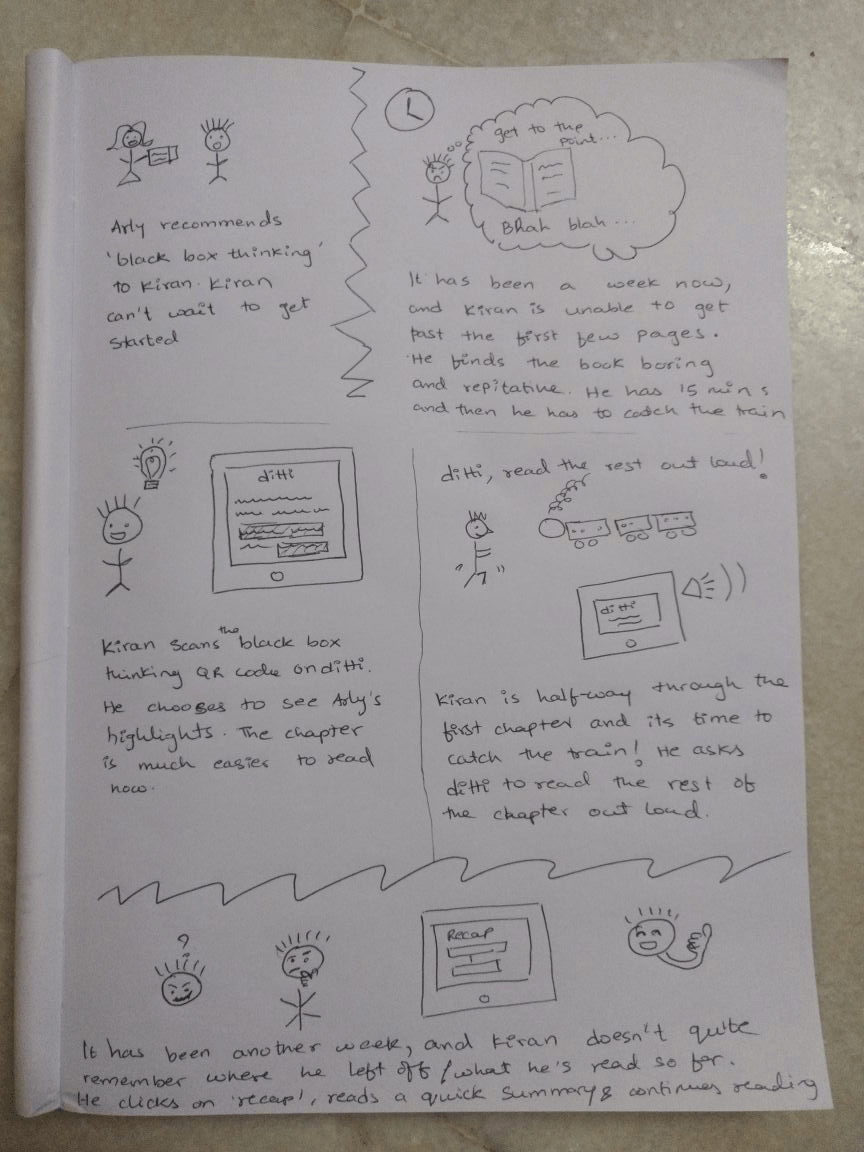 Arly recommends
'black box thinking'
to Kiran. Kiran
can't wait to get
started
get to the
point...
Blah blah...
It has been a week now,
and Kiran is unable to get
past the first few pages.
He finds the book boring
and repitative. He has 15 mins
and then he has to catch the train
ditti
Kiran scans the black box
thinking QR code on ditti.
He chooses to see Arly's
highlights. The chapter
is much easier to read
now.
ditti, read the rest out loud!
ditti
Kiran is half-way through the
first chapter and its time to
catch the train! He asks
ditti to read the rest of
the chapter out loud.
?
Recap
It has been another week, and Kiran doesn't quite
remember where he left off / what he's read so far.
He clicks on 'recap', reads a quick summary & continues reading